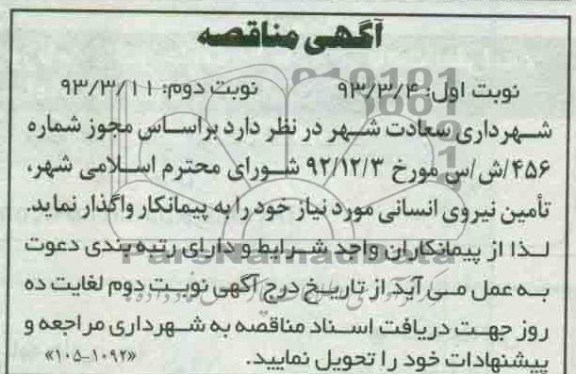 آگهی مناقصه
نوبت اول: ۹۳/۳/۴ نوبت دوم: ۹۳/۳/۱۱
شهرداری سعادت شهر در نظر دارد براساس مجوز شماره
۴۵۶/ش/س مورخ ۹۲/۱۲/۳ شورای محترم اسلامی شهر،
تأمین نیروی انسانی مورد نیاز خود را به پیمانکار واگذار نماید.
لذا از پیمانکاران واجد شرایط و دارای رتبه بندی دعوت
به عمل می آید از تاریخ درج آگهی نوبت دوم لغایت ده
روز جهت دریافت اسناد مناقصه به شهرداری مراجعه و
پیشنهادات خود را تحویل نمایید. «۱۰۵-۱۰۹۲»
ParsNamadData